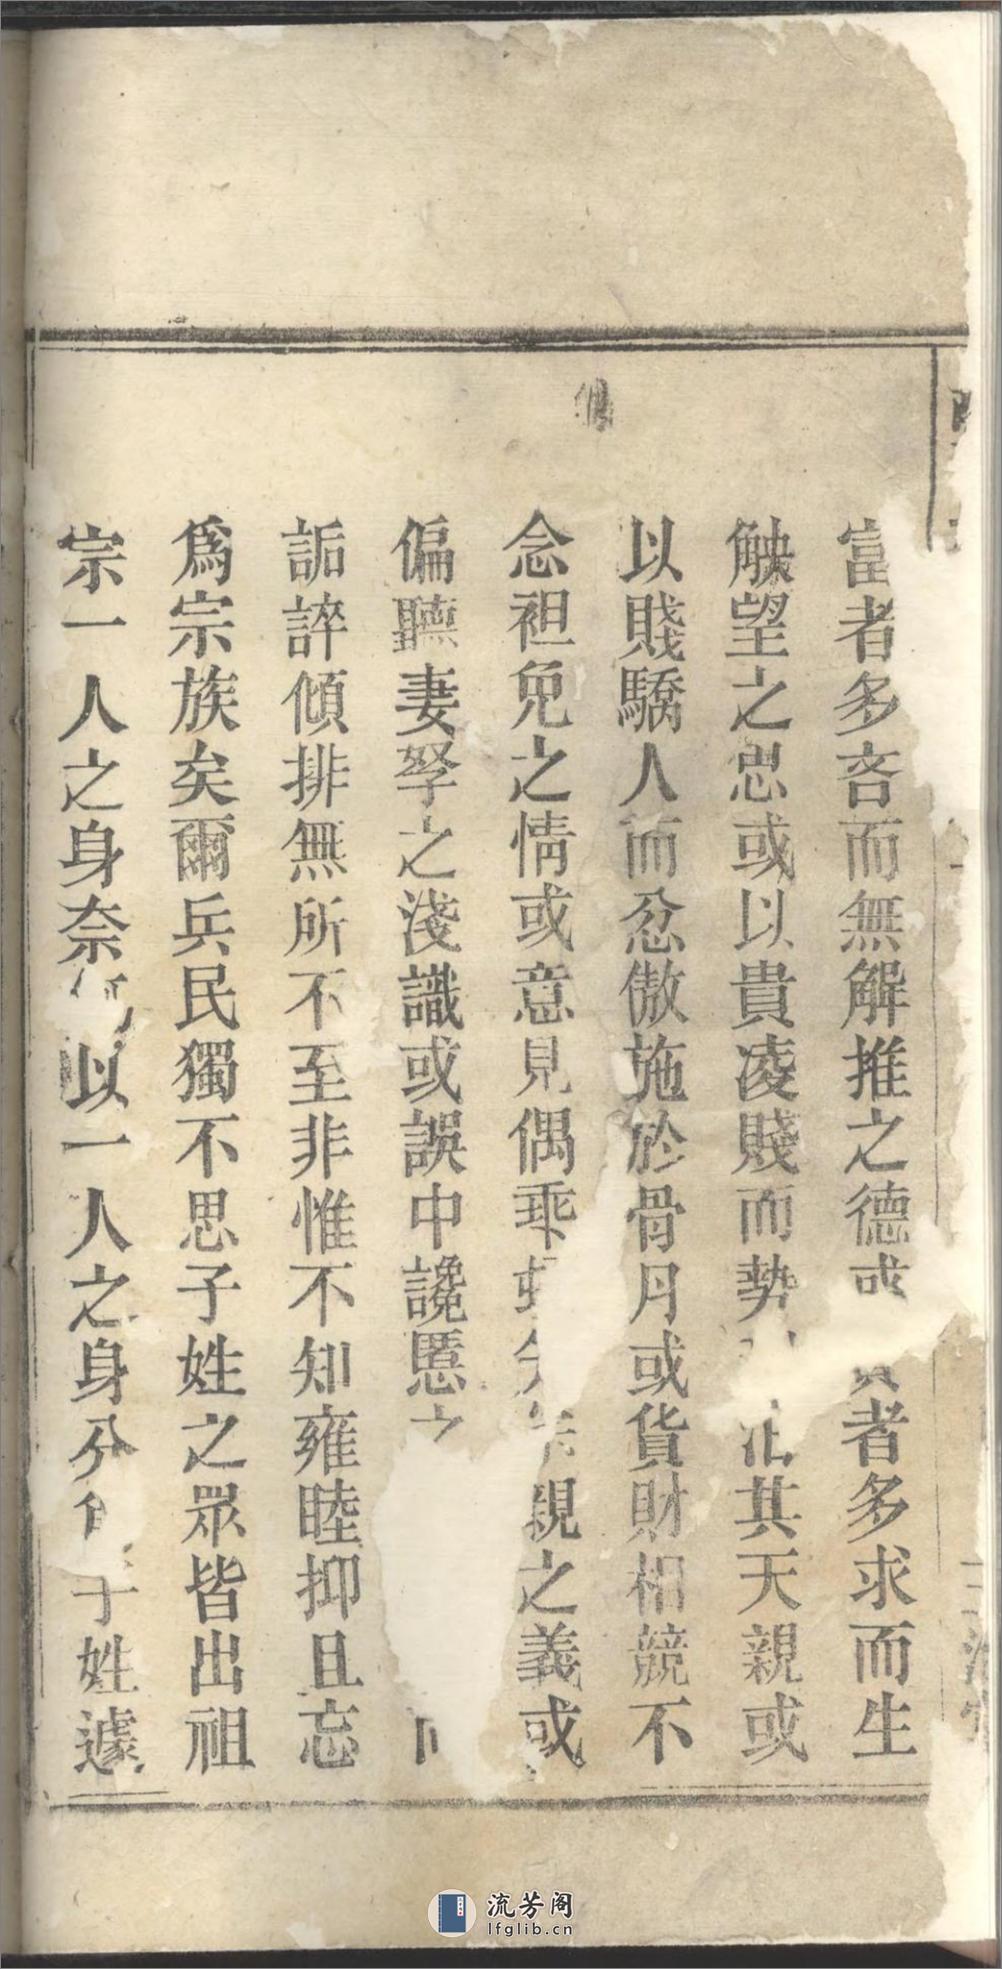 富者多吝而無解推之德或貧者多求而生
觖望之思或以貴凌賤而勢汨其天親或
以賤驕人而忿傲施於骨肉或貨財相競不
念袒免之情或意見偶乖失親之義或
偏聽妻孥之淺識或誤中讒慝之
詬誶傾排無所不至非惟不知雍睦抑且忘
為宗族矣爾兵民獨不思子姓之眾皆出祖
宗一人之身奈何以一人之身分為子姓遽
流芳阁
lfglib.cn